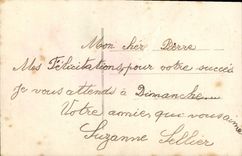 Mon chér Pierre
Mes Félicitations pour votre succés
je vous attends à Dimanche
Votre amies qui vous aime
Suzanne Sellier